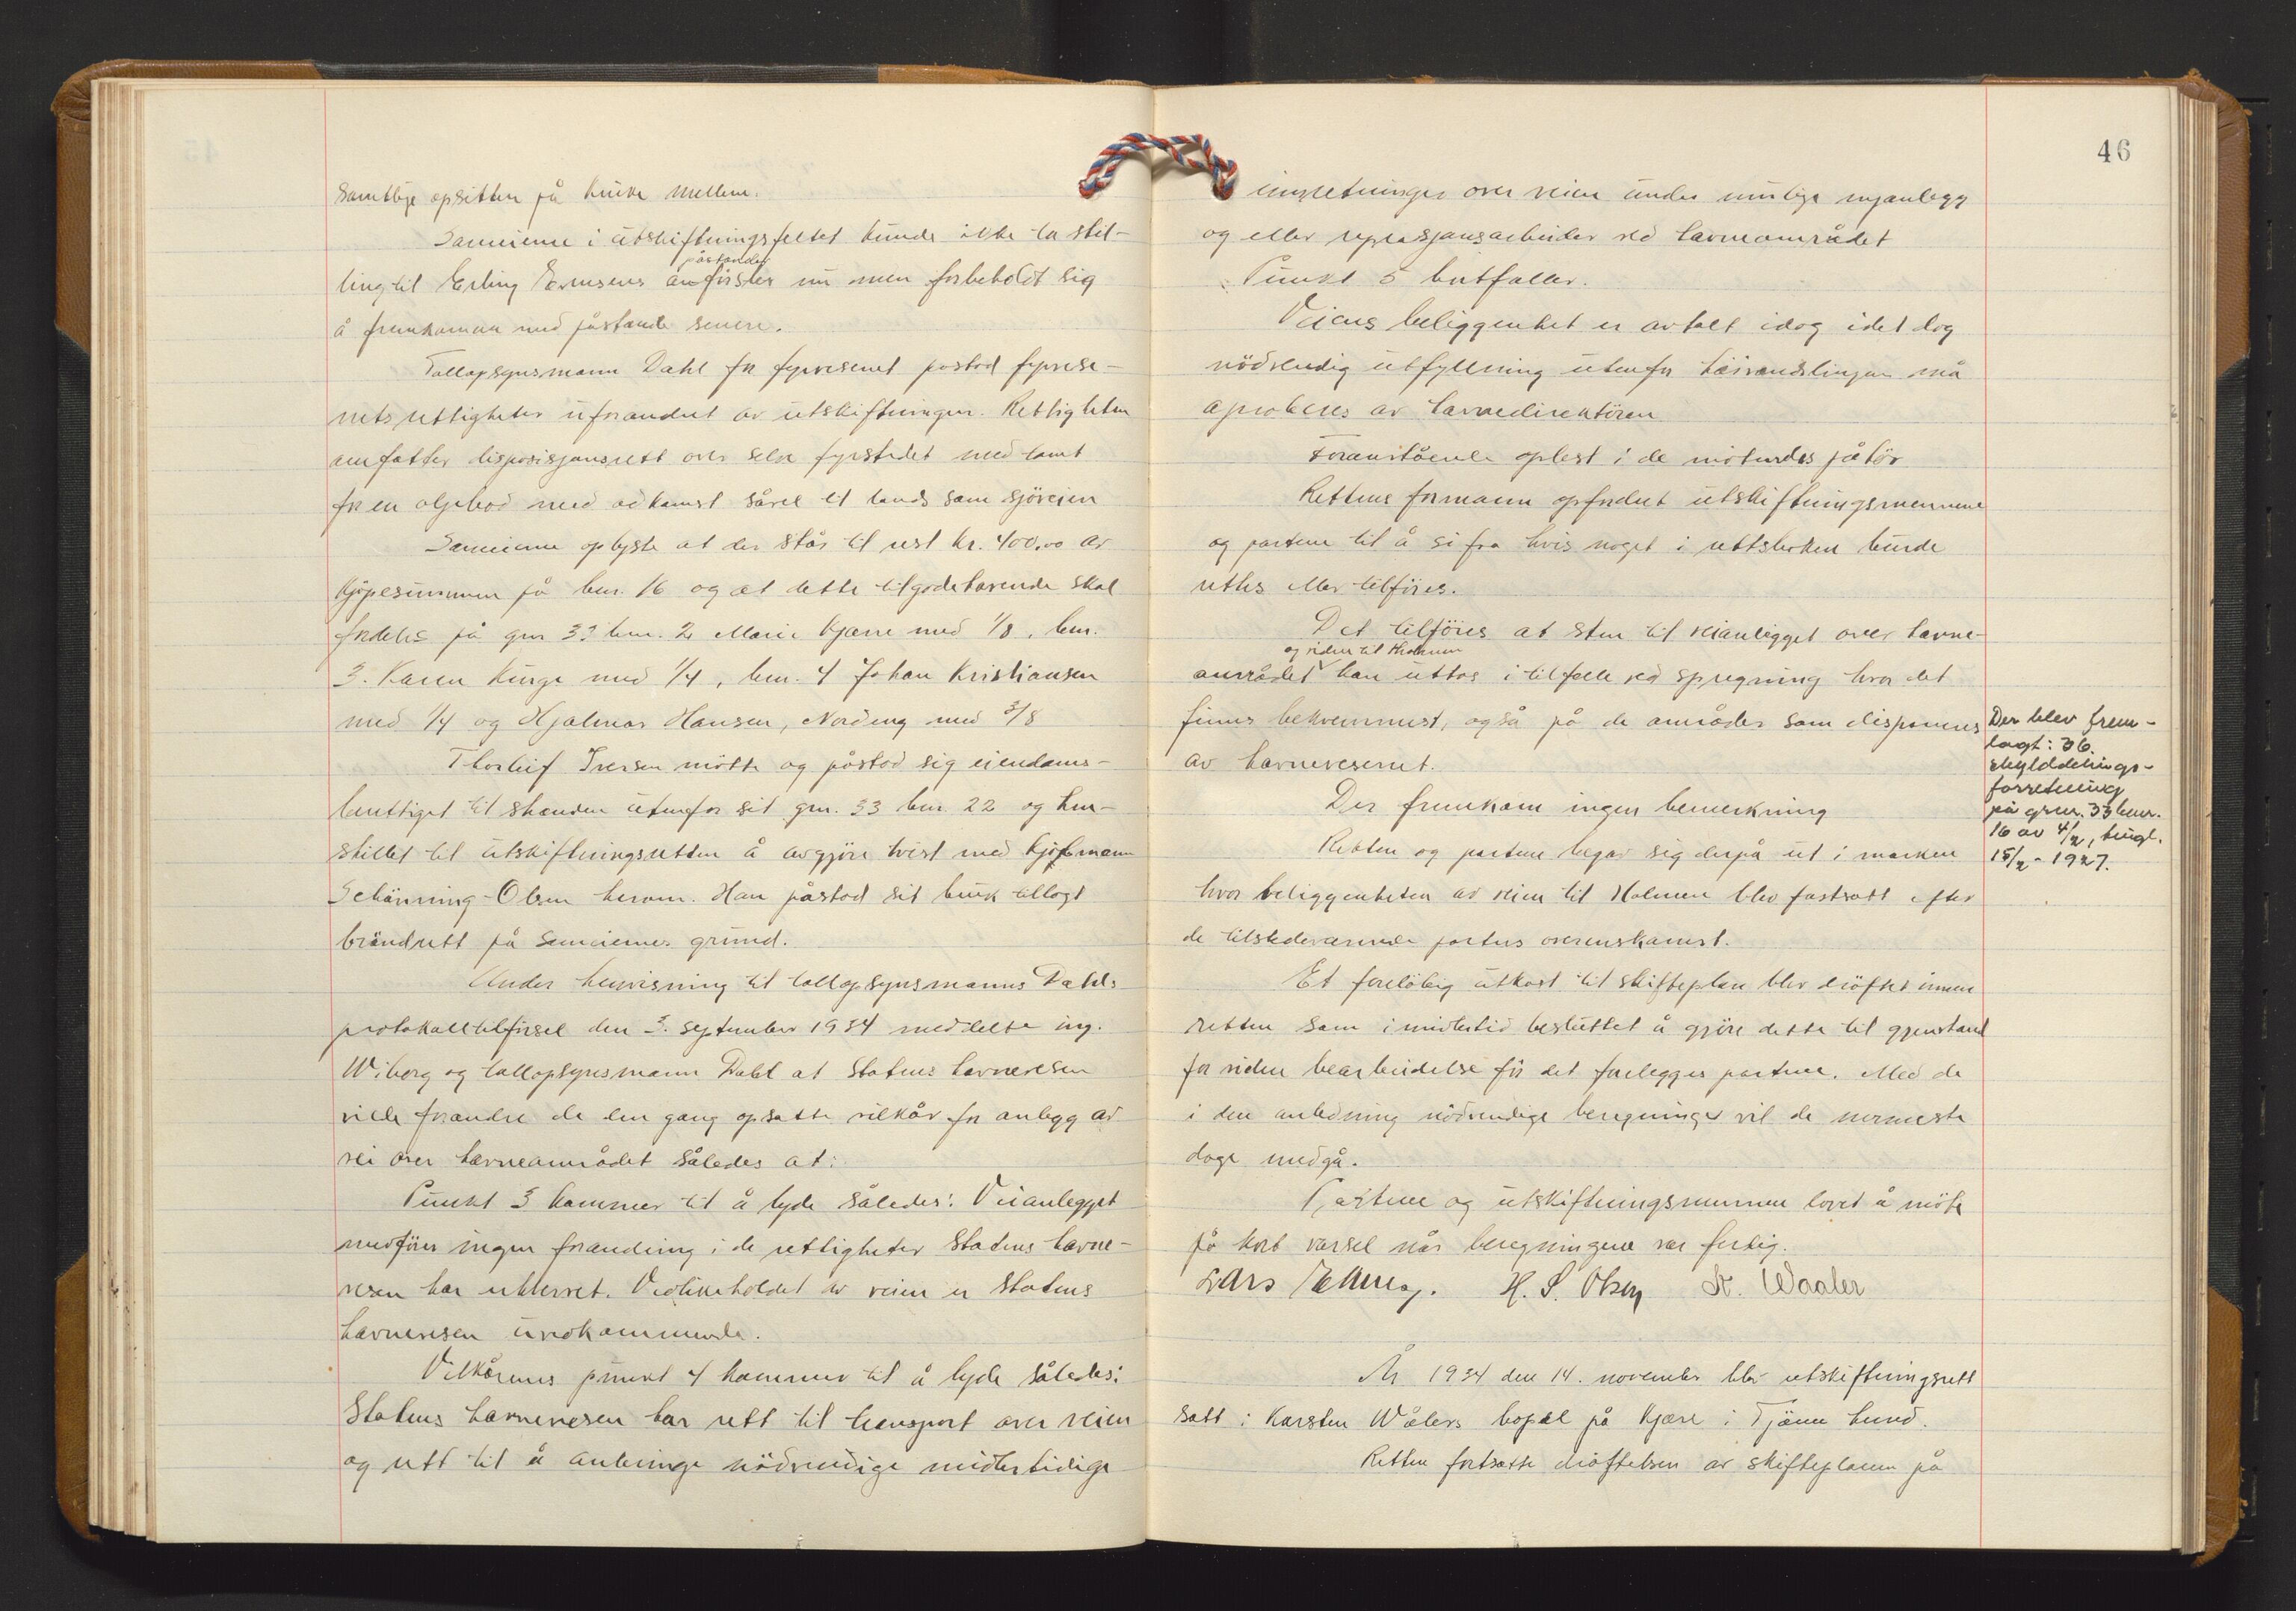 samtlige opsittere på Kruke mellem.
Sameierne i utskiftningsfeltet kunde ikke ta stil-
påstander
ling til Erling Evensens anførsler nu men forbeholdt sig
å fremkomme med påstande senere.
Tollopsynsmann Dahl for fyrvesenet påstod fyrvese-
nets rettigheter uforandret av utskiftningen. Rettigheten
omfatter disposisjonsrett over selve fyrstedet med tomt
for en oljebod med adkomst såvel til lands som sjøveien
Sameierne oplyste at der står til rest kr. 400,00 av
kjøpesummen på bnr. 16 og at dette tilgodehavende skal
fordeles på gnr 33 bnr. 2 Marie Kjære med 1/8, bnr.
3. Karen Kruge med 1/4, bnr. 4 Johan Kristiansen
med 1/4 og Hjalmar Hansen, Nordeng med 3/8
Thorleif Iversen møtte og påstod sig eiendoms-
berettiget til stranden utenfor sit gnr. 33 bnr. 22 og hen-
stillet til utskiftningsretten å avgjøre tvist med kjøpmann
Schånning-Olsen herom. Han påstod sit bruk tillagt
brøndrett på sameiernes grund.
Under henvisning til tollopsynsmanns Dahls
protokolltilførsel den 3. september 1934 meddelte ing.
Wiborg og tollopsynsmann Dahl at Statens havnevesen
vilde forandre de den gang opsatte vilkår for anlegg av
vei over havneområdet således at:
Punkt 3 kommer til å lyde således: Veianlegget
medfører ingen forandring i de rettigheter Statens havne-
vesen har ervervet. Vedlikeholdet av veien er Statens
havnevesen uvedkommende.
Vilkårenes punkt 4 kommer til å lyde således:
Statens havnevesen har rett til transport over veien
og rett til å anbringe nødvendige midlertidige
46
innretninger over veien under mulige nyanlegg
og eller reprasjonsarbeider ved havneområdet
Punkt 5 bortfaller.
Veiens beliggenhet er avtalt idag idet dog
nødvendig utfyllning utenfor må
aproberes av havnedirektøren
Foranstående oplest i de møtendes påhør
Rettens formann opfordret utskiftningsmennene
og partene til å si fra hvis noget i rettsboken burde
rettes eller tilføres.
Det tilføres at sten til veianlegget over havne-
og videre til Holmen
området kan uttas i tilfelle ved sprengning hvor det
finnes bekvemmest, også på de områder som disponeres
av havnevesenet.
Der fremkom ingen bemerkning
Retten og partene begav sig derpå ut i marken
hvor beliggenheten av veien til Holmen blev fastsatt efter
de tilstedeværende parters overenskomst.
Et foreløbig utkast til skifteplan blev drøftet innen
retten som imidlertid besluttet å gjøre dette til gjenstand
for videre bearbeidelse før det forelegges partene. Med de
i den anledning nødvendige beregninger vil de nærmeste
dage medgå.
Partene og utskiftningsmennene lovet å møte
på kort varsel når beregningene var ferdig.
Lars H. S. Olsen K. Waaler
År 1934 den 14. november blev utskiftningsrett
satt i Karsten Wålers bopæl på Kjære i Tjøme herred.
Retten fortsatte drøftelsen av skifteplanen på
Der blev frem-
lagt: 36.
skylddelings-
forretning
på gnr. 33 bnr.
16 av 4/2, tingl.
15/2 - 1927.